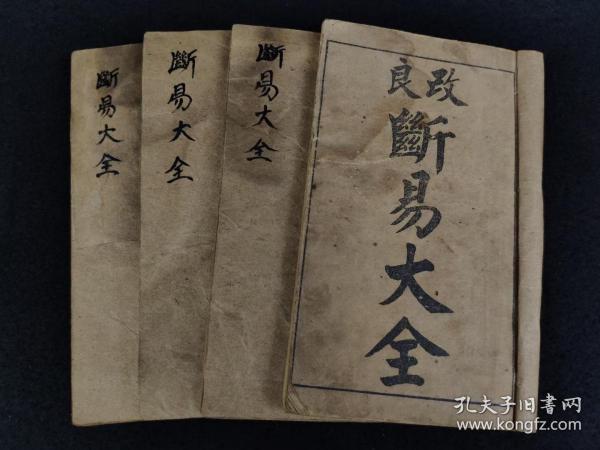 斷易大全
斷易大全
斷易大全
改良
斷易大全
孔夫子旧書网
www.kongfz.com